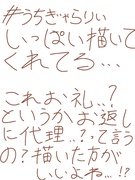 #うちぎゃらりぃ
しっぽい描いて
くれてる…
これお礼…?
というかお返し
に代理…?って言う
の?描いた方が
いいよね…!!